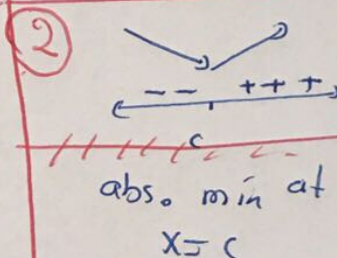 2
-- +++
c
abs. min at
x = c